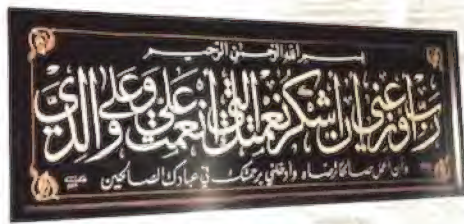 بسم الله الرحمن الرحيم
رب أوزعني أن أشكر نعمتك التي أنعمت علي وعلى والدي
وأن أعمل صالحا ترضاه وأدخلني برحمتك في عبادك الصالحين